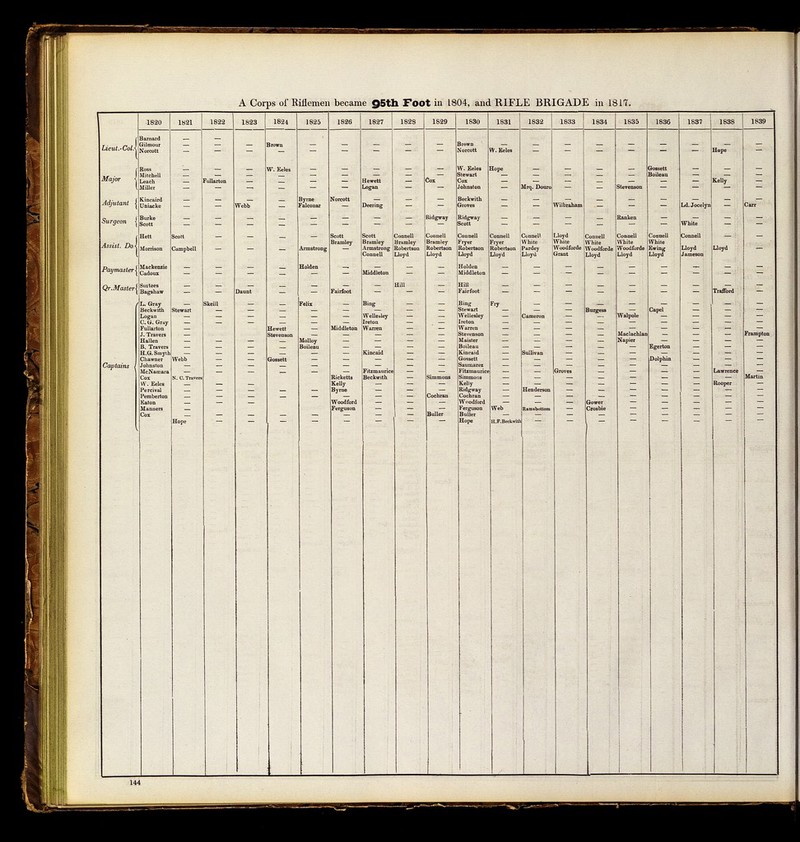 A Corps of Riflemen became 95th Foot in 1804, and RIFLE BRIGADE in 1817.
1820 1821 1822 1823 1824 1825 1826 1827 1828 1829 1830 1831 1832 1833 1834 1835 1836 1837 1838 1839
Lieut.-Col.
Barnard — —
Gilmour — — — Brown — — — — — Brown — — — — — — — — —
Norcott — — — — — — — — — Norcott W. Eeles — — — — — — Hope —
Major
Ross — — — W. Eeles — — — — — W. Eeles Hope — — — — Gossett — — —
Mitchell — — — — — — — — — Stewart — — — — — Boileau — — —
Leach — Fullarton — — — — Hewett — Cox Cox — — — — — — — Kelly —
Miller — — — — — — Logan — — Johnston — Mrq. Douro — — Stevenson — — — —
Adjutant
Kincaird — — — — Byrne Norcott — — — Beckwith — — — — — — — — —
Uniacke — — Webb — Falconar — Deering — — Groves — — Wilbraham — — — Ld. Jocelyn — Carr
Surgeon
Burke — — — — — — — — Ridgway Ridgway — — — — Ranken — — — —
Scott — — — — — — — — — Scott — — — — — — White — —
Assist. Do
Hett Scott — — — — Scott Scott Connell Connell Connell Connell Connell Lloyd Connell Connell Connell Connell — —
Bramley Bramley Bramley Bramley Fryer Fryer White White White White White
Morrison Campbell — — — Armstrong — Armstrong Robertson Robertson Robertson Robertson Pardey Woodforde Woodforde Woodforde Ewing Lloyd Lloyd —
Connell Lloyd Lloyd Lloyd Lloyd Lloyd Grant Lloyd Lloyd Lloyd Jameson
Paymaster
Mackenzie — — — — Holden — — — — Holden — — — — — — — — —
Cadoux — — — — — — Middleton — — Middleton — — — — — — — — —
Qr. Master
Surtees — — — — — — — Hill — Hill — — — — — — — — —
Bagshaw — — Daunt — — Fairfoot — — — Fairfoot — — — — — — — Trafford —
Captains
L. Gray — Skeill — — Felix — Bing — — Bing Fry — — — — — — — —
Beckwith Stewart — — — — — — — — Stewart — — — Burgess — Capel — — —
Logan — — — — — — Wellesley — — Wellesley — Cameron — — Walpole — — — —
C. G. Gray — — — — — — Ireton — — Ireton — — — — — — — — —
Fullarton — — — Hewett — Middleton Warren — — Warren — — — — — — — — —
J. Travers — — — Stevenson — — — — — Stevenson — — — — Maclachlan — — — Frampton
Hallen — — — — Molloy — — — — Maister — — — — Napier — — — —
B. Travers — — — — Boileau — — — — Boileau — — — — — Egerton — — —
H.G. Smyth — — — — — — Kincaid — — Kincaid — Sullivan — — — — — — —
Chawner Webb — — Gossett — — — — — Gossett — — — — — Dolphin — — —
Johnston — — — — — — — — — Saumarez — — — — — — — — —
McNamara — — — — — — Fitzmaurice — — Fitzmaurice — — Groves — — — — Lawrence —
Cox N. C. Travers — — — — Ricketts Beckwith — Simmons Simmons — — — — — — — — Martin
W. Eeles — — — — — Kelly — — — Kelly — — — — — — — Rooper —
Percival — — — — — Byrne — — — Ridgway — Henderson — — — — — — —
Pemberton — — — — — — — — Cochran Cochran — — — — — — — — —
Eaton — — — — — Woodford — — — Woodford — — — Gower — — — — —
Manners — — — — — Ferguson — — — Ferguson Web Ramsbottom — Crosbie — — — — —
Cox — — — — — — — — Buller Buller — — — — — — — — —
Hope — — — — — — — — Hope H.F.Beckwith — — — — — — — —
144